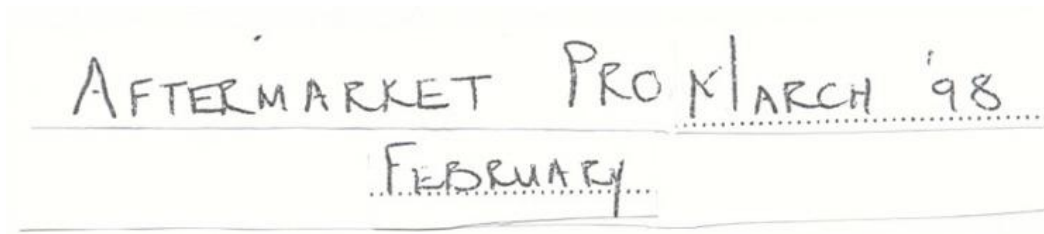 AFTERMARKET PRO MARCH '98
FEBRUARY